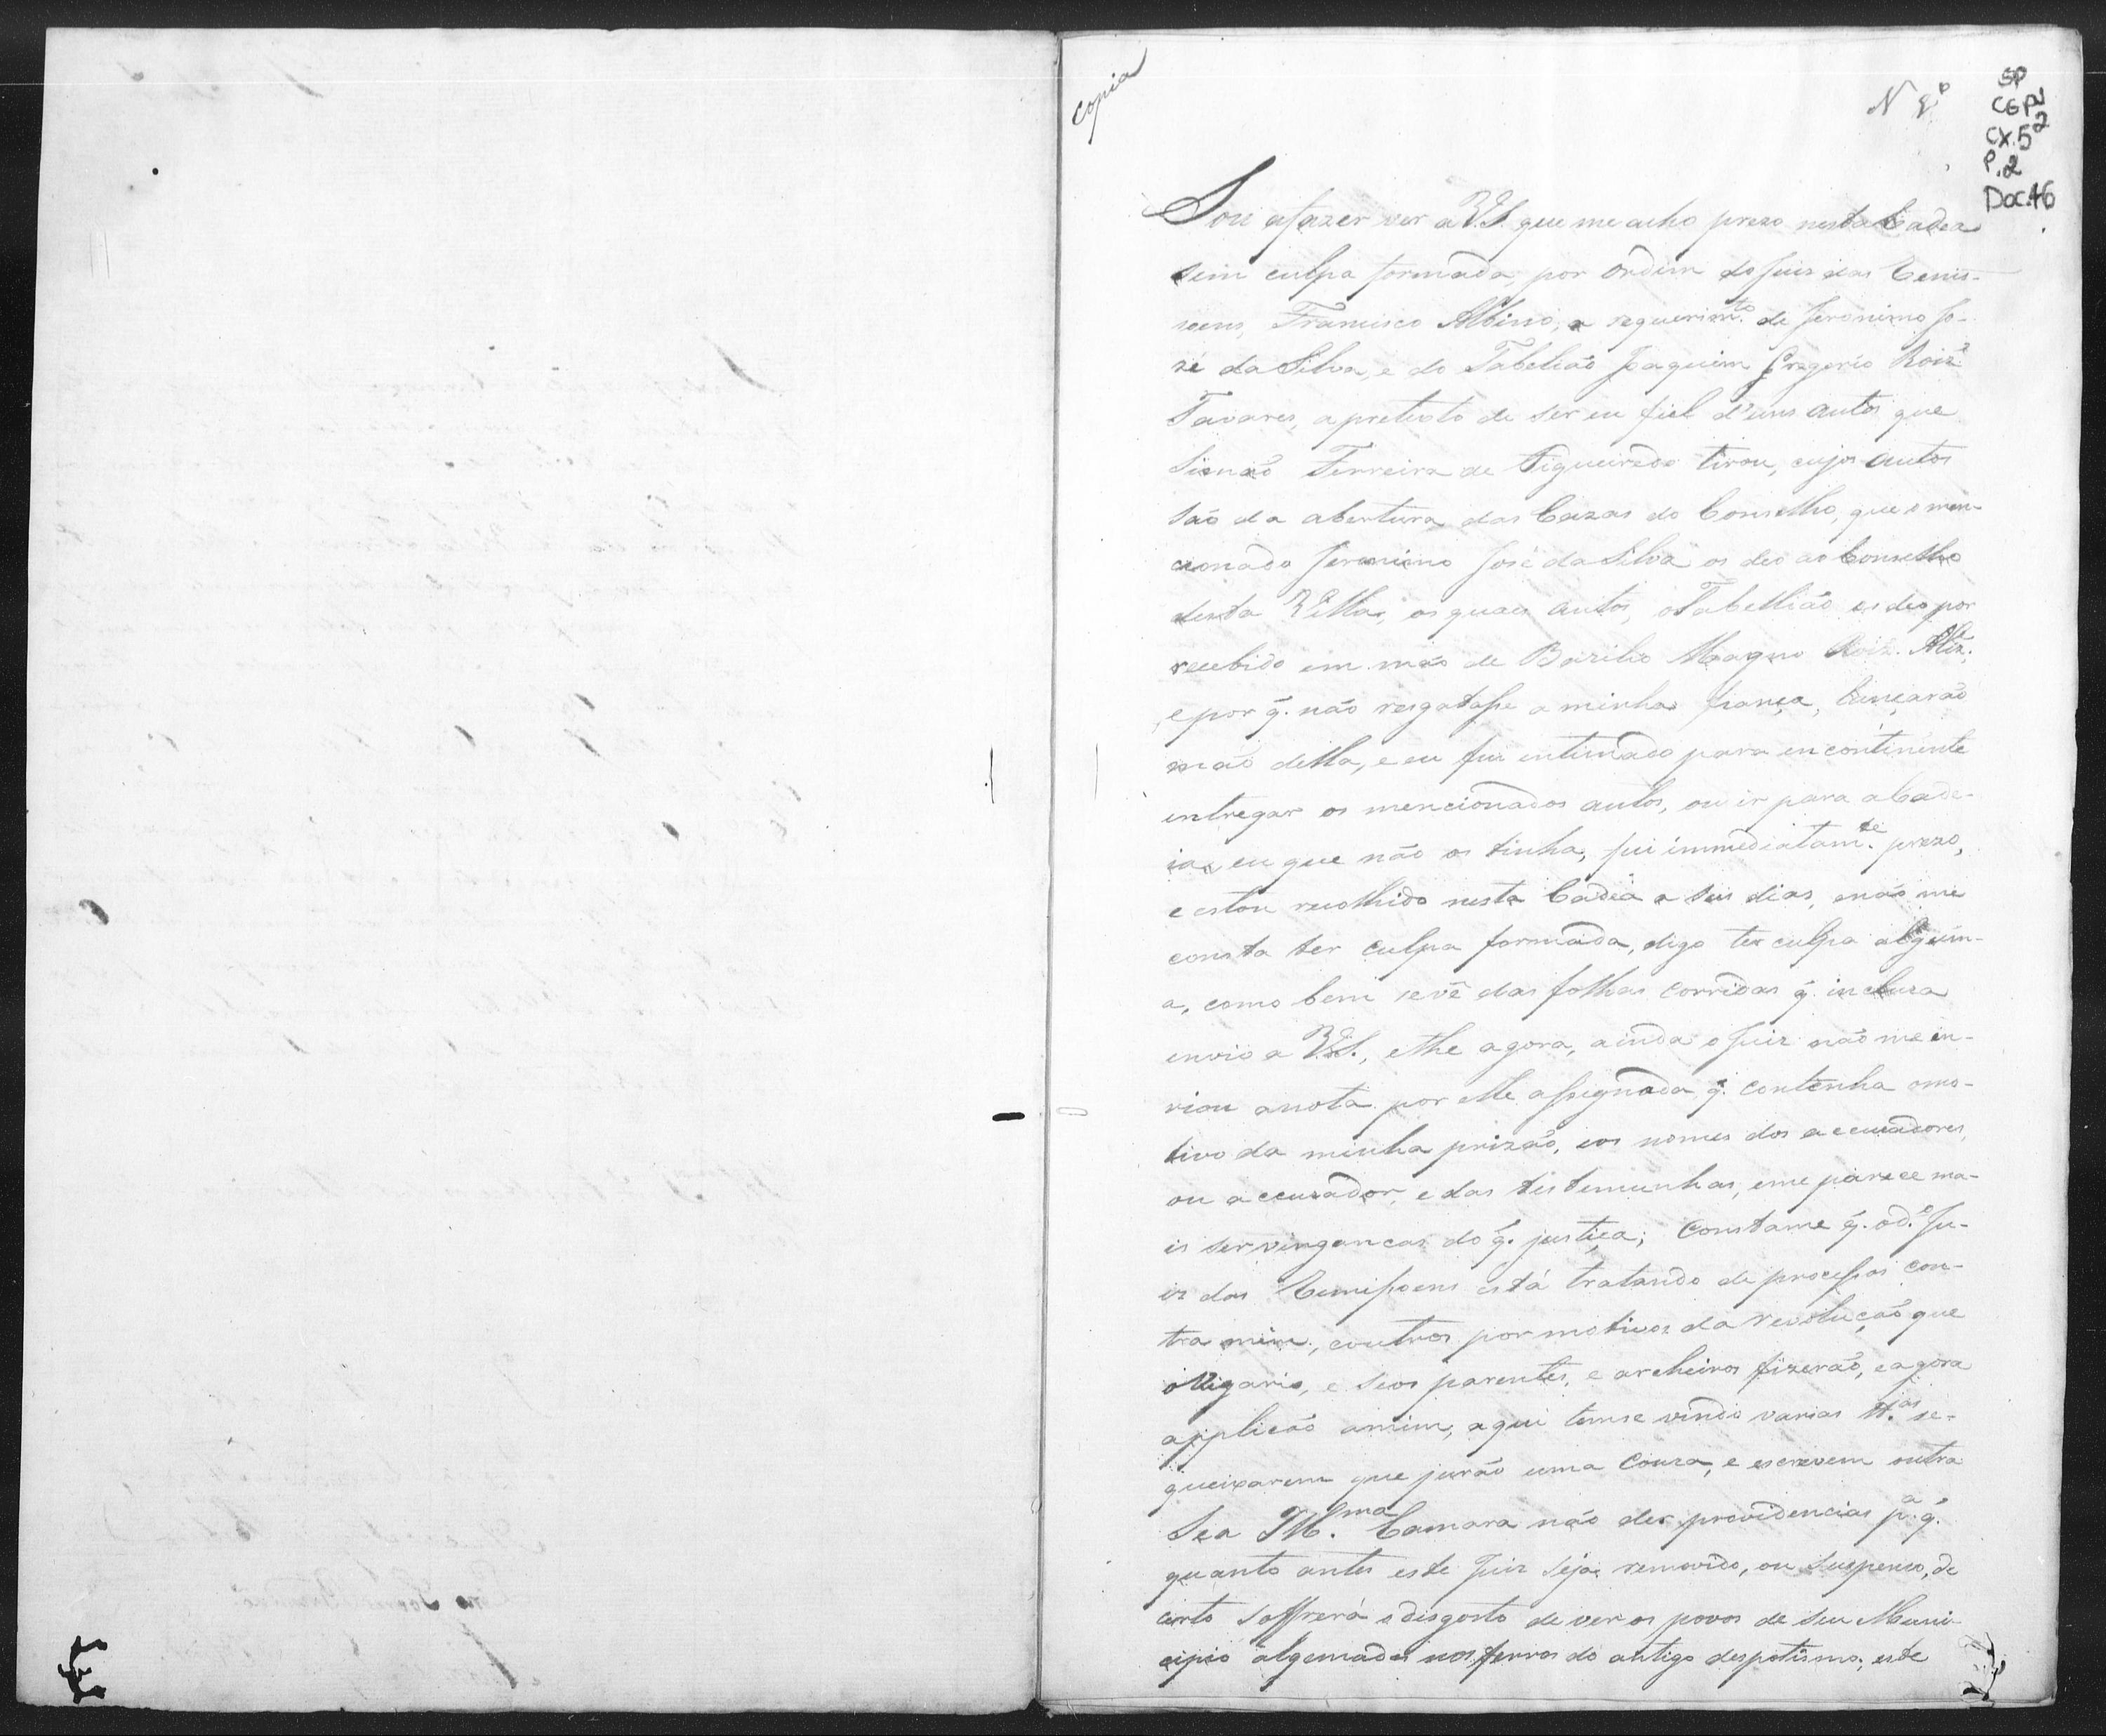 Copia
Nº
SP
CGPJ
CX.52
P.2
Doc.46
Sou afazer ver a V.S. que me acho prezo nesta Cadea
sem culpa formada, por ordem do Juiz das Cemis-
soens, Francisco Albino, a requerimto. de Jeronimo Jo-
zé da Silva, e do Tabelião Joaquim Gregorio Roiz
Tavares, apretexto de ser eu fiel d'uns autos que
Simão Ferreira de Figueiredo tirou, cujos autos
são da abertura das Cazas do Conselho, que o men-
cionado Jeronimo José da Silva os deo ao Conselho
desta Villa, os quaes autos, oTabellião os deo por
recebido em mão de Bazilio Magno Roiz.
e por q̃. não resgatasse aminha fiança, lançarão
mão della, e eu fui intimado para incontinente
entregar os mencionados autos, ou ir para aCade-
ia, eu que não os tinha, fui immediatamte. prezo,
e estou recolhido nesta Cadêa a seis dias, enão me
consta ter culpa formada, digo ter culpa algum-
a, como bem sevê das folhas corridas q̃. incluza
envio a V.S., ethe agora, ainda o Juiz não me en-
viou anota por elle assignada q̃. contenha omo-
tivo da minha prizão, eos nomes dos accuzadores,
ou accuzador, e das testemunhas, eme parece ma-
is ser vinganças do q̃. justiça; Constame q̃. od.º Ju-
iz das Cemissoens está tratando de processos con-
tra mim, eoutros por motivos da revolução que
oVigario, e seos parentes, e archeiros fizerão, eagora
applicão amim, aqui temse vindo varias tt.as se-
queixarem que jurão uma Couza, e escrevem outra
Sea Ill.ma Camara não der providencias p.a q̃.
quanto antes este Juiz seja removido, ou suspenso, de
certo soffrerá odisgosto de ver os povos de seu Muni-
cipio algemados nos ferros do antigo despotismo; este